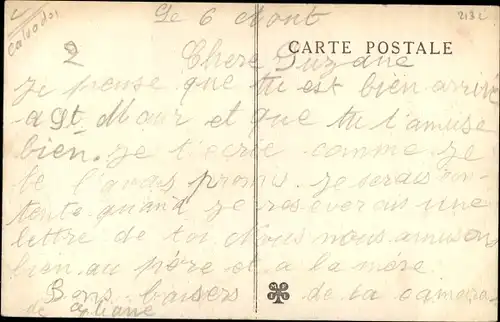 Calvados
213 c
Le 6 Aout
CARTE POSTALE
2 Chere Suzane
Je pense que tu est bien arrivé
a St Maur et que tu t'amuse
bien. Je t'ecrie comme je
te l'avais promis. Je serais con-
tente quand je reseverais une
lettre de toi. Nous nous amusons
bien au père et a la mère
Bons baisers de ta camarade
de